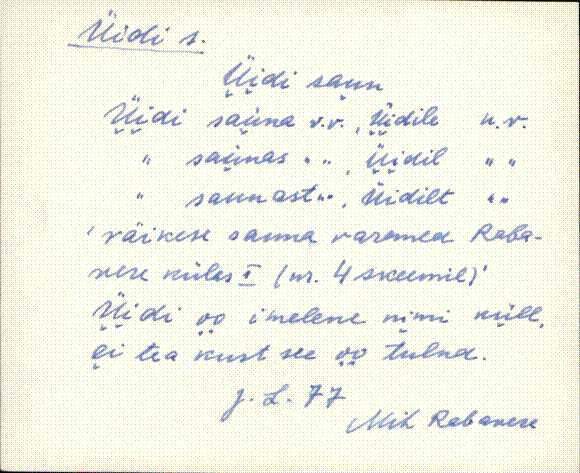 Üidi s.
Üi̯di sau̯n
Üi̯di sau̯na v.v., Üi̯dile n.v.
" sau̯nas " ", Üi̯dil " "
" saunast " ", Üidilt " "
'väikese sauna varemed Raba-
vere külas I (nr. 4 skeemil)'
Üi̯di o̯o̯ imelene ni̯mi küll,
e̯i tea kust see o̯o̯ tulnd.
J. L. 77
MiK Rabavere